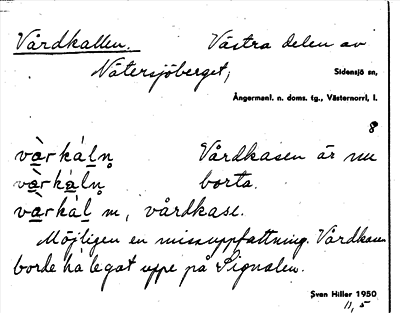 Vårdkallen. Västra delen av
Nätersjöberget,
Sidensjö sn,
Ångermanl. n. doms. tg., Västernorrl, l.
8
vàrkáln̥ Vårdkasen är nu
vàrkáln̥ borta.
vàrkál m, vårdkase.
Möjligen en missuppfattning. Vårdkasen
borde ha legat uppe på Signalen.
Sven Hiller 1950
11, 5